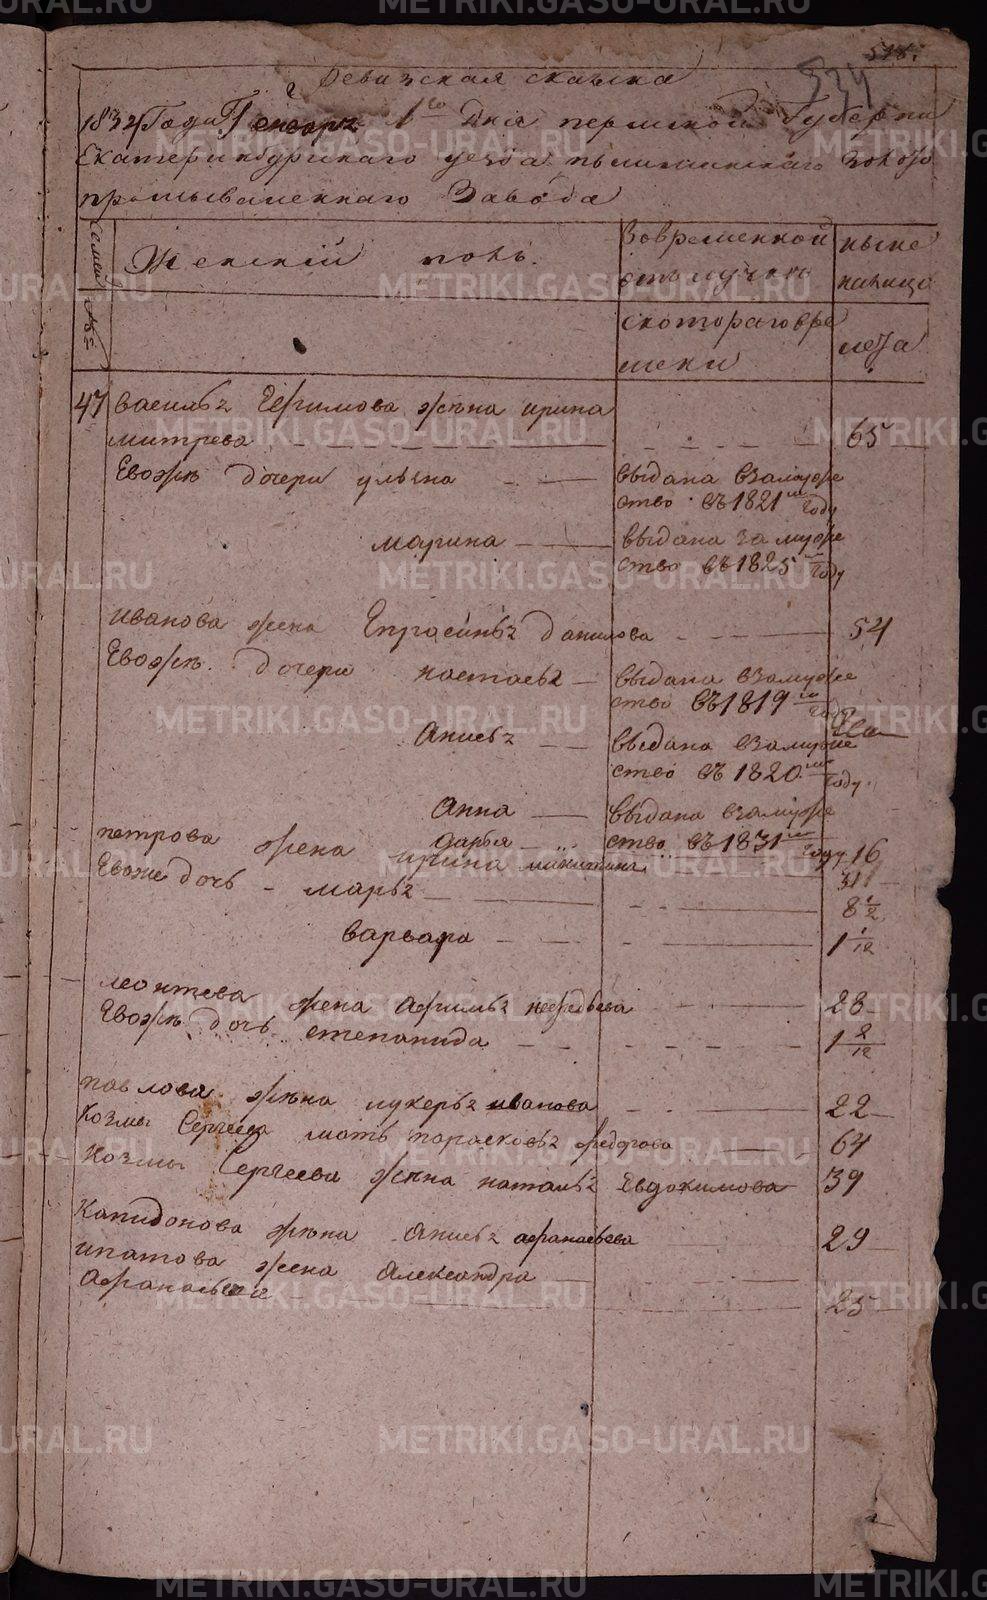 534
Ревизская сказка
1834 Года Генваря 1го Дня пермской Губернии
Екатеринбургскаго уезда пышминскаго золото
промываленнаго Завода
Женский полъ.
Вовременной
отлучке
ныне
налицо
скотораговре
мени
лета
47 василья Ефимова жена ирина
митрева 65
Евожъ дочери ульяна выдана взамуже
ство въ 1821м году
марина выдана замуже
ство въ 1825м году
иванова жена Епросинья данилова 54
Евожъ дочери настасья выдана взамуже
ство въ 1819м году
Анисья выдана взамуже
ство въ 1820м году.
Анна выдана взамуже
дарья ство въ 1831м году 16
петрова жена ирина никитина 31
Евоже дочь марья 8 1/2
варвара 1 1/12
леонтева жена Афимья нефедьева 28
Евожъ дочь степанида 1 2/12
павлова жена лукерья иванова 22
Козмы Сергеева мать парасковья федорова 64
Козмы Сергеева жена наталья Евдокимова 39
Капидонова жена Анисья афанасьева 29
ипатова жена Александра
Афанасьева 25
METRIKI.GASO-URAL.RU